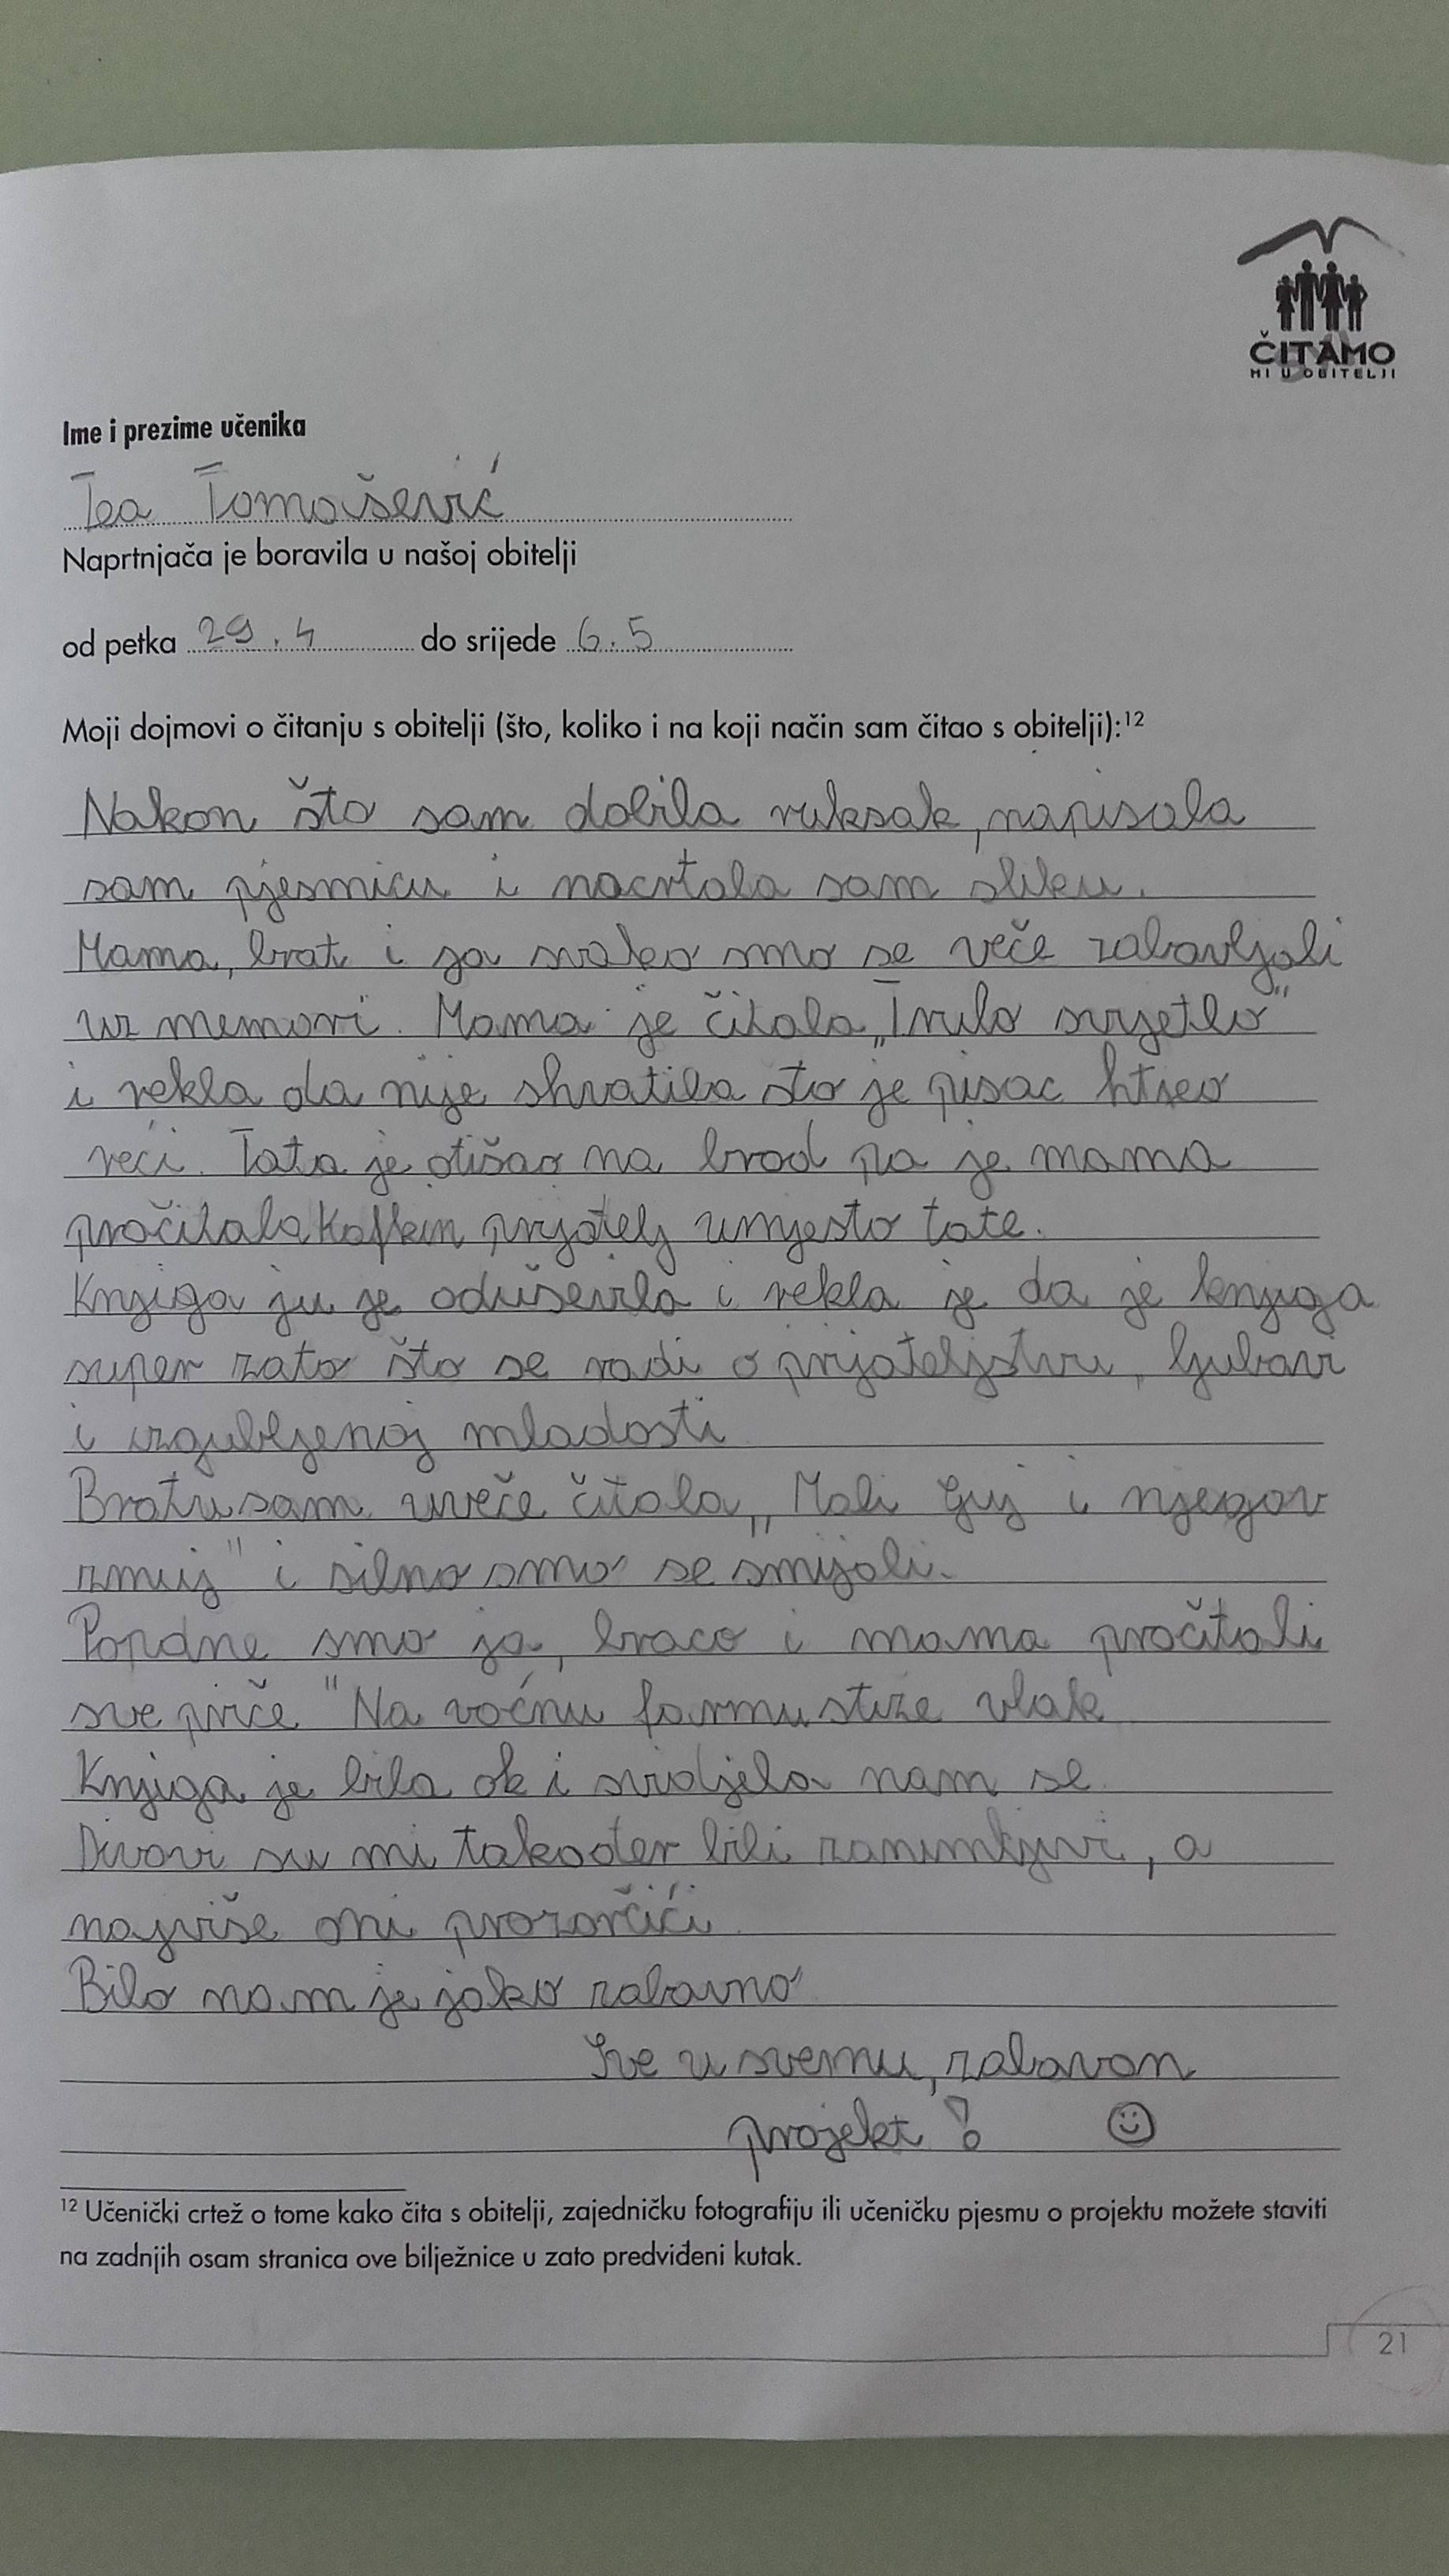 ČITAMO
MI U OBITELJI
Ime i prezime učenika
Tea Tomašević
Naprtnjača je boravila u našoj obitelji
od petka 29.4 do srijede 6.5
Moji dojmovi o čitanju s obitelji (što, koliko i na koji način sam čitao s obitelji):¹²
Nakon što sam dobila ruksak, napisala
sam pjesmicu i nacrtala sam sliku.
Mama, brat i ja svako smo se veče zabavljali
uz memori. Mama je čitala „Trulo svjetlo"
i rekla da nije shvatila što je pisac htjeo
reći. Tata je otišao na brod pa je mama
pročitala Kafkin prijatelj umjesto tate.
Knjiga ju je oduševila i rekla je da je knjiga
super zato što se radi o prijateljstvu, ljubavi
i izgubljenoj mladosti
Bratu sam uveče čitala „Mali Guj i njegov
zmuj" i silno smo se smijali.
Popdne smo ja, braco i mama pročitali
sve priče "Na voćnu farmu stize vlak
Knjiga je bila ok i svidjela nam se
Divovi su mi takoder bili zanimljivi, a
najviše oni prozorčići.
Bilo nam je jako zabavno
Sve u svemu, zabavan
projekt!
¹² Učenički crtež o tome kako čita s obitelji, zajedničku fotografiju ili učeničku pjesmu o projektu možete staviti
na zadnjih osam stranica ove bilježnice u zato predviđeni kutak.
21